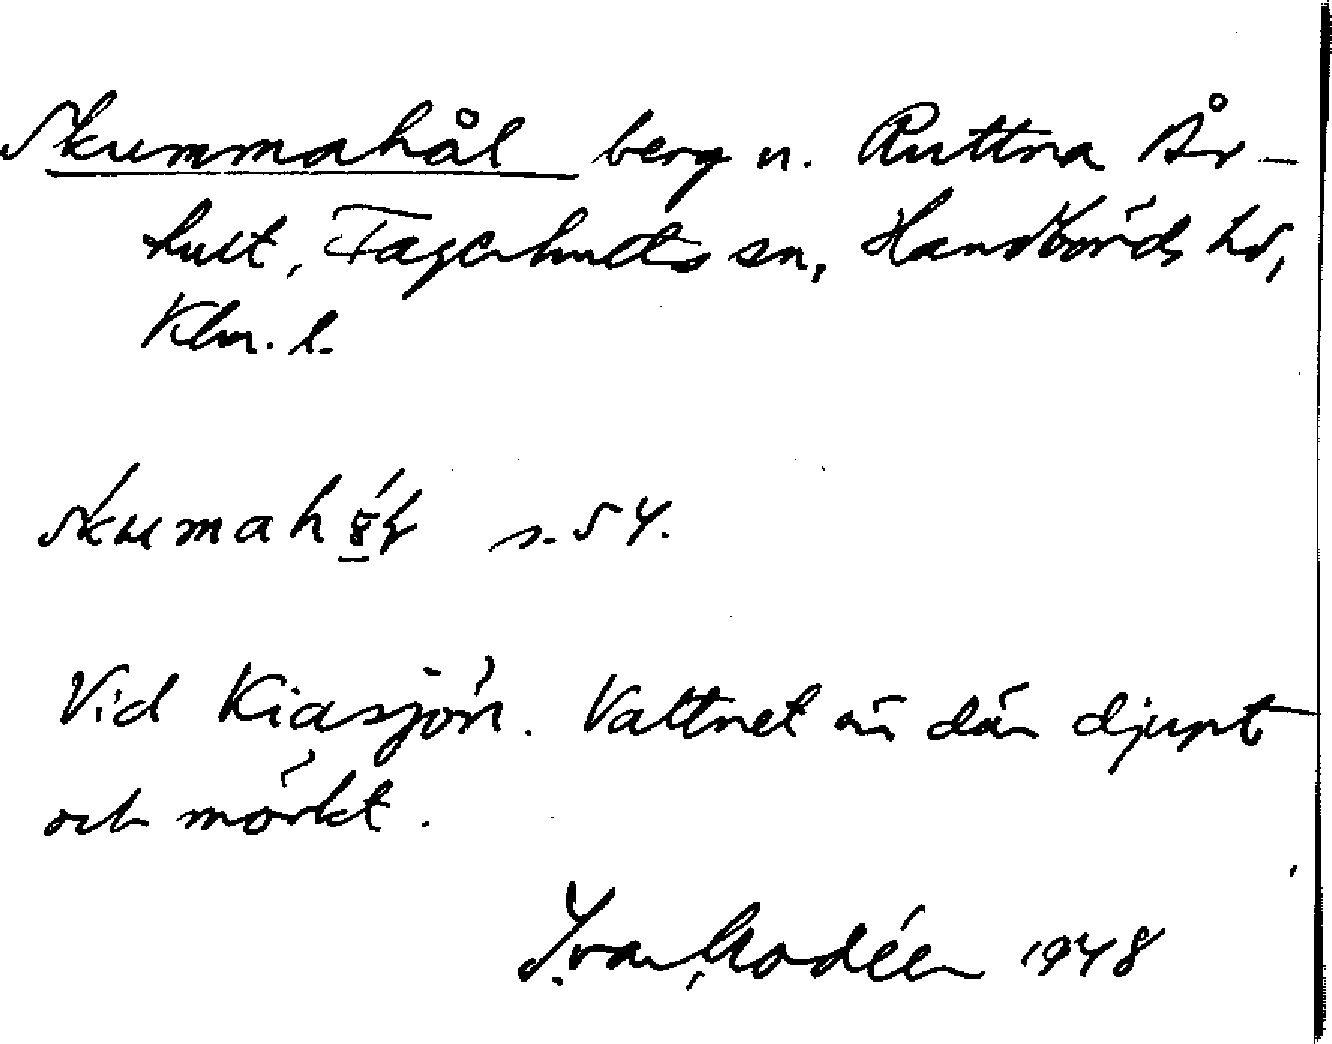 Skummahål berg n. Ruttna År-
hult, Fagerhults sn, Handbörds hd,
Klm. l.
s. 54.
Vid Kiasjön. Vattnet är där djupt
och mörkt.
Ivar Modéer 1948